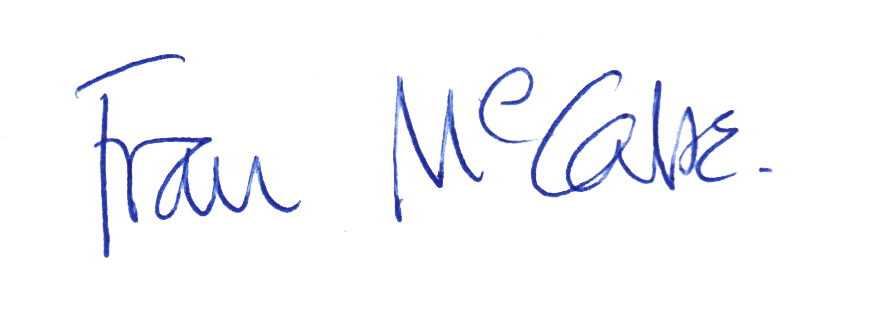 Fran McCabe.